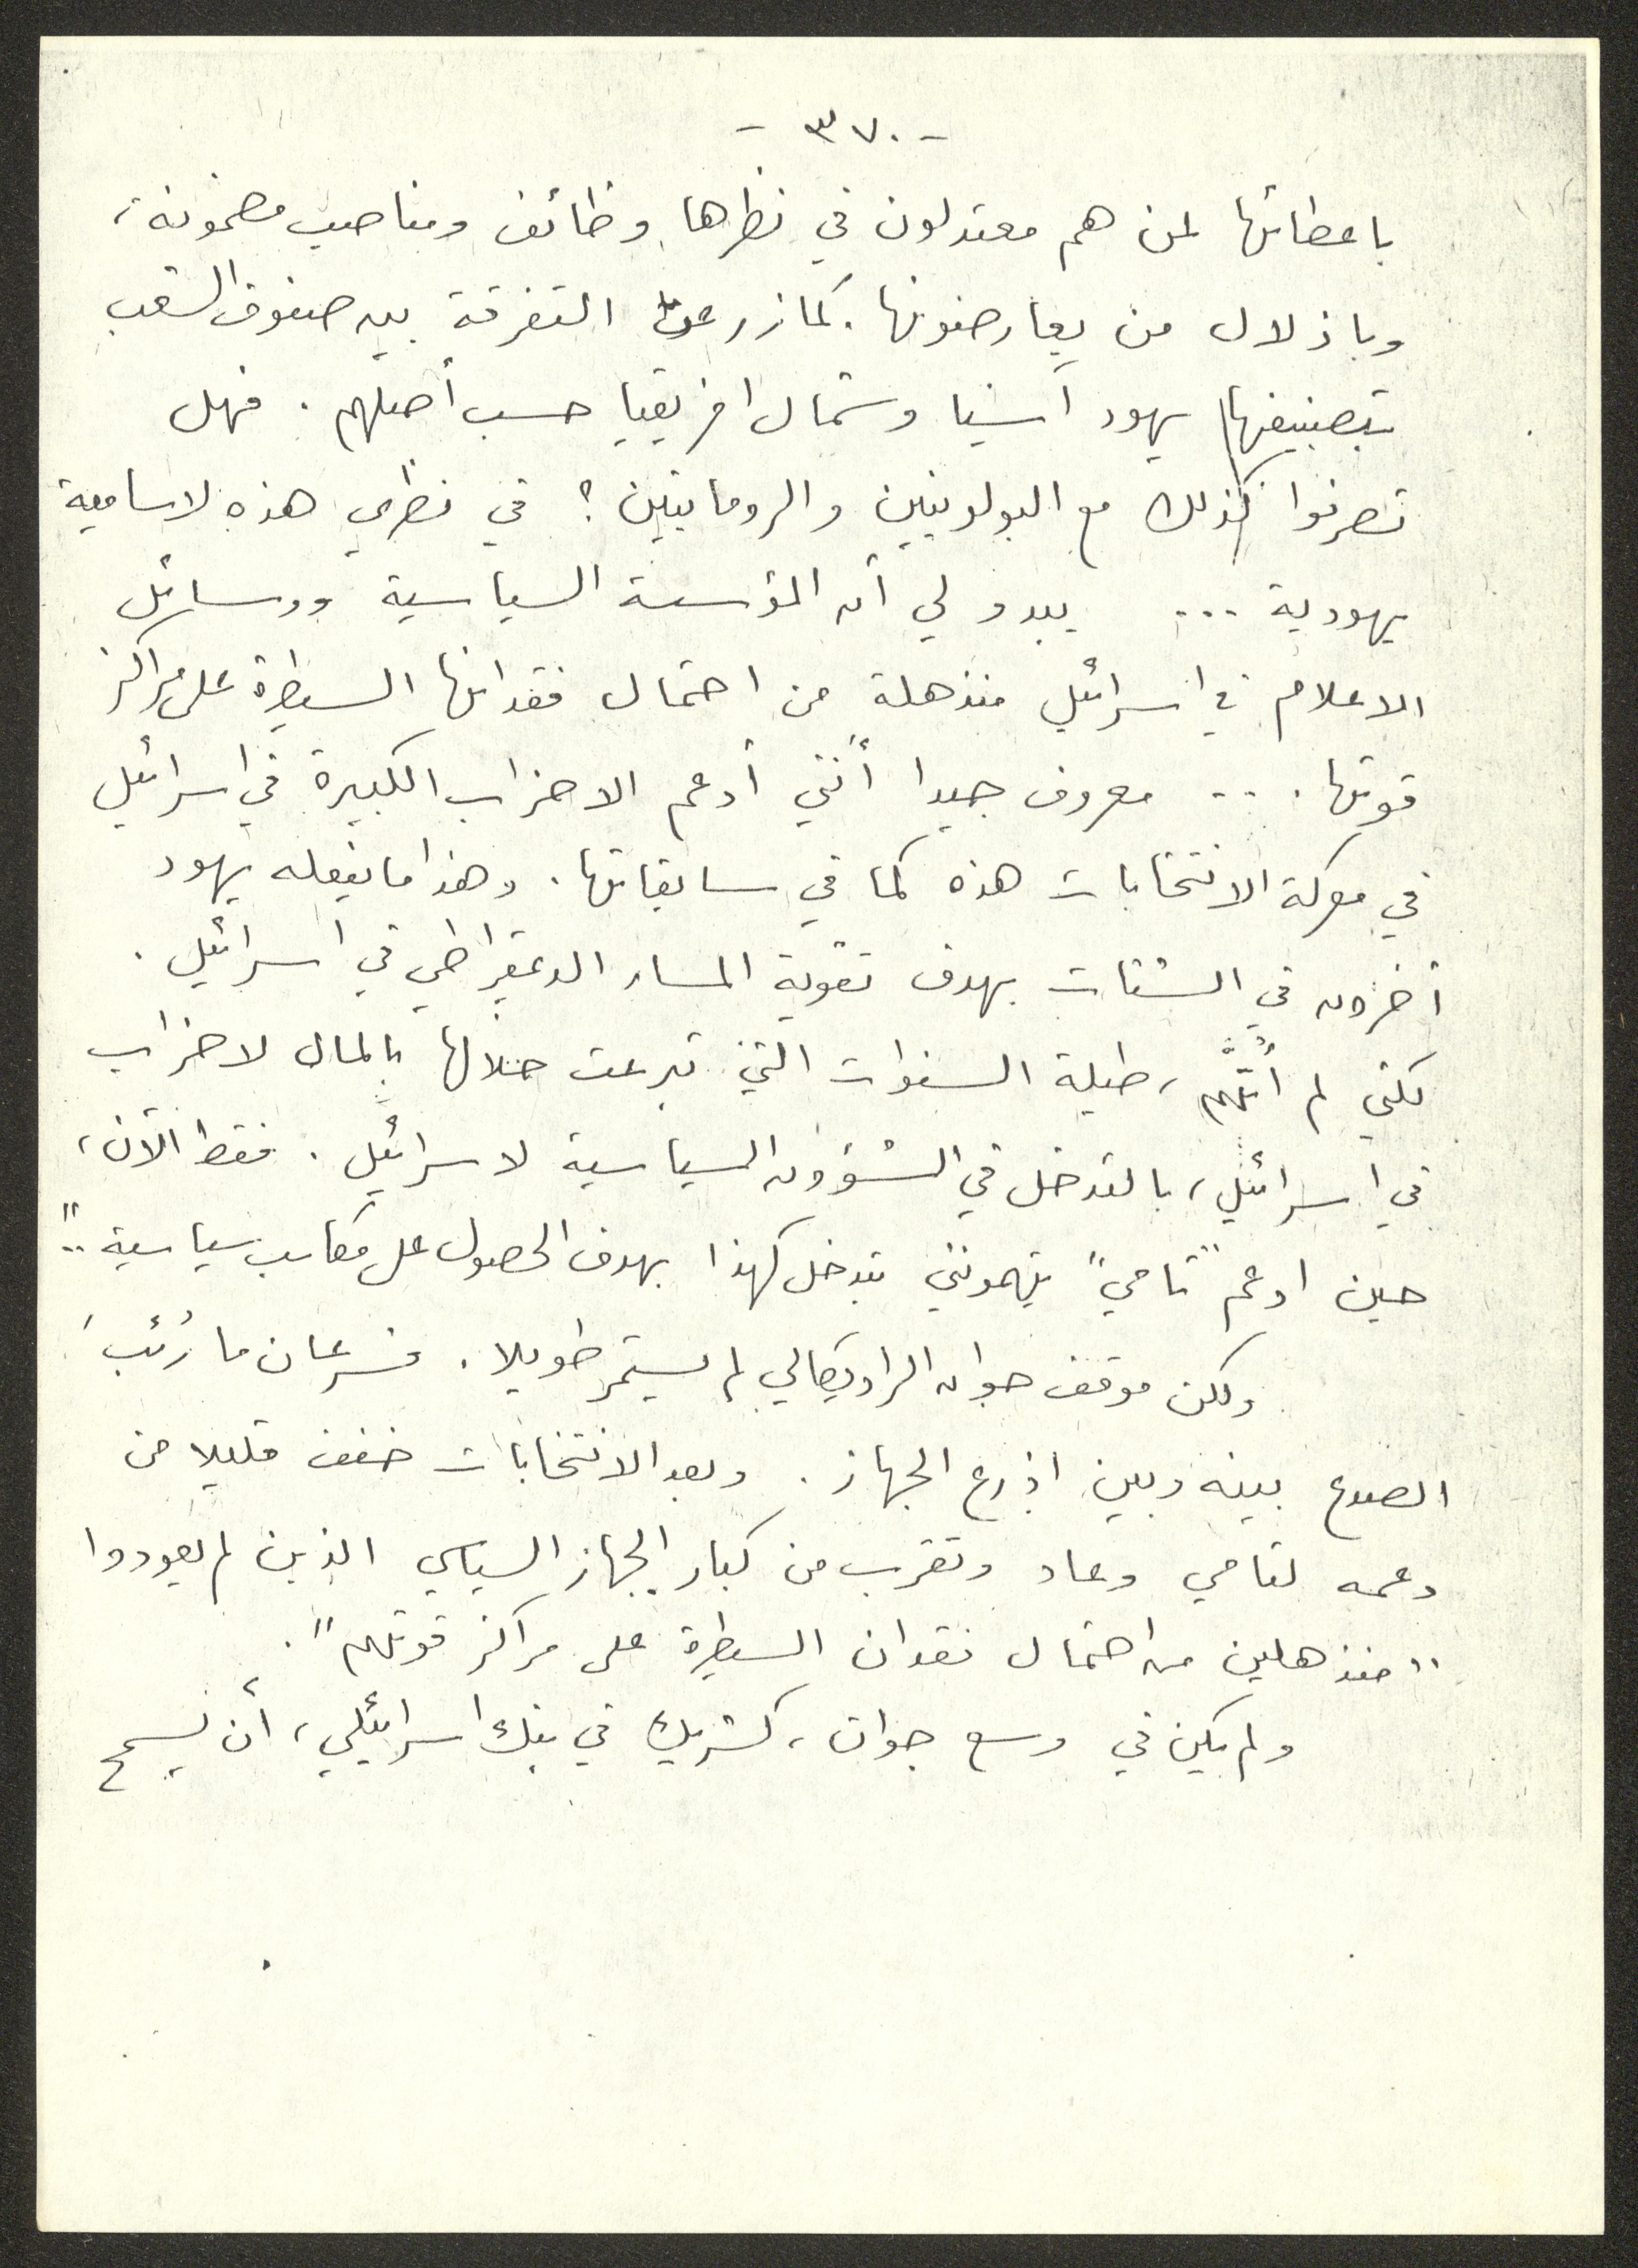 - ٣٧٠ -
باعطائها لمن هم معتدلون في نظرها وظائف ومناصب مضمونة،
وباذلال من يعارضونها. كما زرعت التفرقة بين صفوف الشعب
بتصنيفها يهود آسيا وشمال افريقيا حسب أصلهم. فهل
تصرفوا كذلك مع البولونيين والرومانيين؟ في نظري هذه لاسامية
يهودية ... يبدو لي أن المؤسسة السياسية ووسائل
الاعلام في اسرائيل منذهلة من احتمال فقدانها السيطرة على مراكز
قوتها. .. معروف جيدا أنني أدعم الاحزاب الكبيرة في اسرائيل
في معركة الانتخابات هذه كما في سابقاتها. وهذا ما يفعله يهود
آخرون في الشتات بهدف تقوية المسار الديمقراطي في اسرائيل.
لكني لم أُتَّهم، طيلة السنوات التي تبرعت خلالها بالمال لاحزاب
في اسرائيل، بالتدخل في الشؤون السياسية لاسرائيل. فقط الآن،
حين ادعم "تامي" يتهمونني بتدخل كهذا بهدف الحصول على مكاسب سياسية.."
ولكن موقف جوان الراديكالي لم يستمر طويلا. فسرعان ما رُئب
الصدع بينه وبين اذرع الجهاز. وبعد الانتخابات خفف قليلا من
دعمه لتامي وعاد وتقرب من كبار الجهاز السياسي الذين لم يعودوا
"منذهلين من احتمال فقدان السيطرة على مراكز قوتهم".
ولم يكن في وسع جوان، كشريك في بنك اسرائيلي، أن يسمح